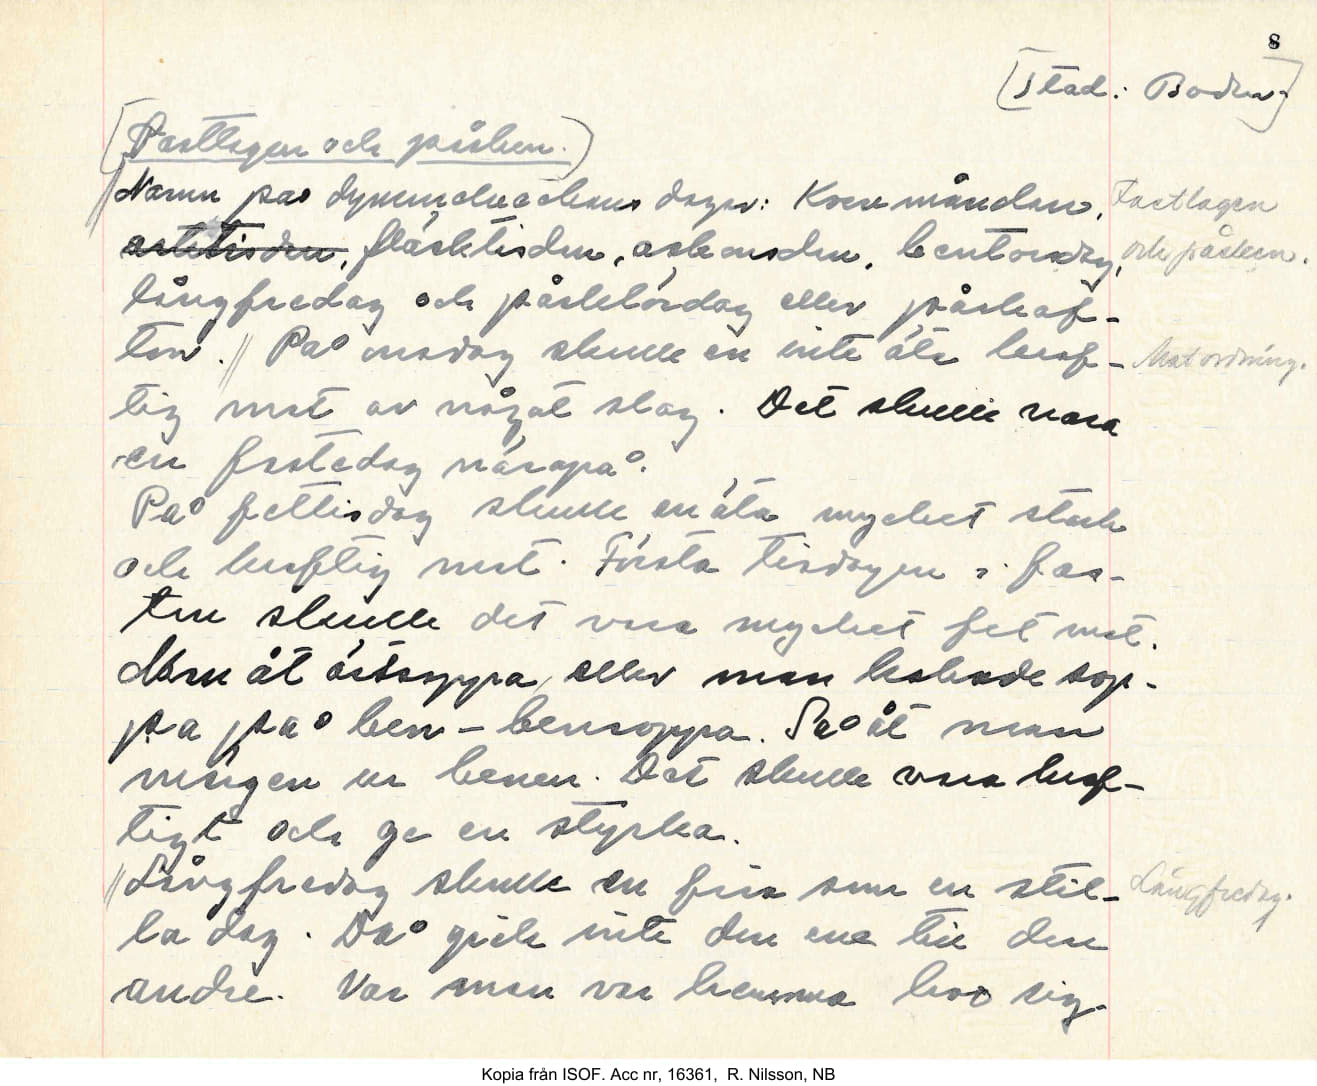 8
[Stad: Boden.]
[Fastlagen och påsken.]
Namn på dymmelveckans dagar: Korvmåndan,
astetisdan, fläsktisdan, askonsdan, bentorsdag,
långfredag och påsklördag eller påskaf-
ton. // På onsdag skulle en inte äta kraf-
tig mat av något slag. Det skulle vara
en fastedag närapå.
På fettisdag skulle en äta mycket stark
och kraftig mat. Första tisdagen i fas-
tan skulle det vara mycket fet mat.
Man åt ärtsoppa, eller man kokade sop-
pa på ben – bensoppa. Så åt man
märgen ur benen. Det skulle vara kraf-
tigt och ge en styrka.
// Långfredag skulle en fira som en stil-
la dag. Då gick inte den ene till den
andre. Var man var hemma hos sig.
Fastlagen
och påsken.
Matordning.
Långfredag.
Kopia från ISOF. Acc nr, 16361, R. Nilsson, NB